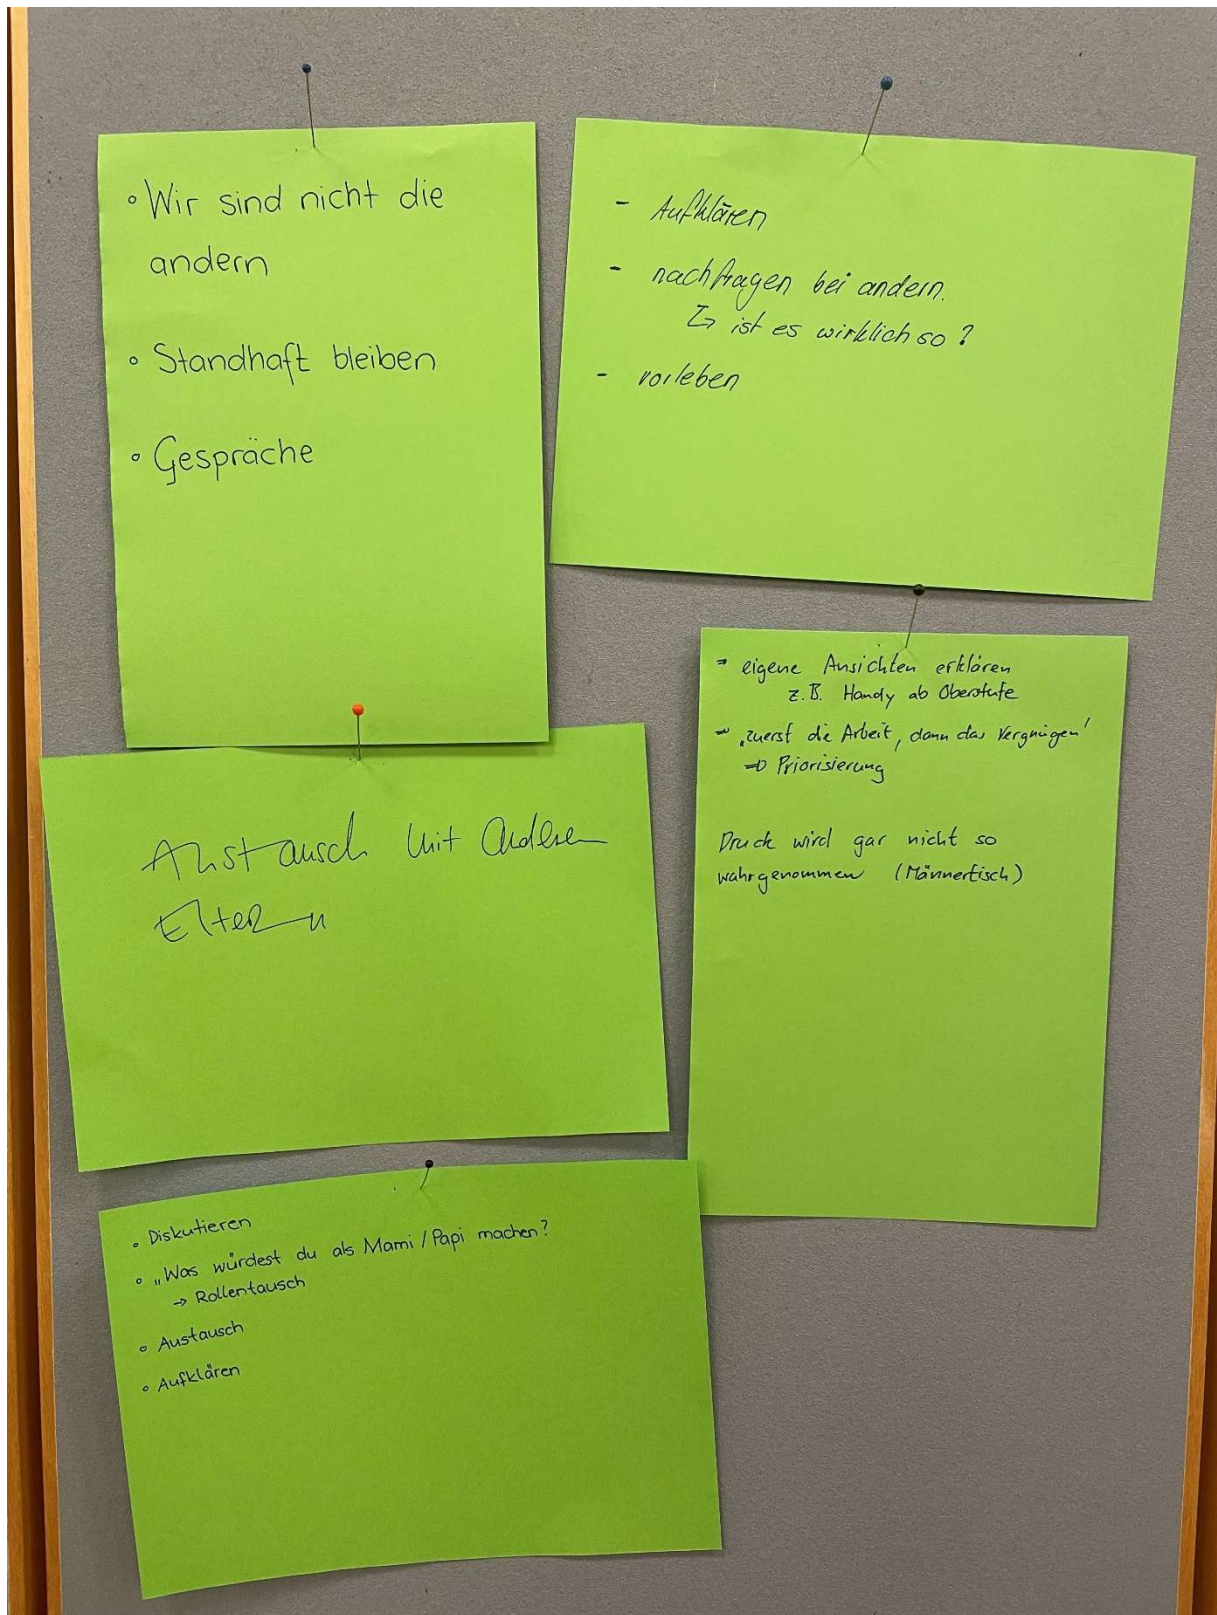 • Wir sind nicht die
andern
• Standhaft bleiben
• Gespräche
- Aufklären
- nachfragen bei andern.
↳ ist es wirklich so?
- vorleben
⇒ eigene Ansichten erklären
z.B. Handy ab Oberstufe
⇒ „zuerst die Arbeit, dann das Vergnügen"
⇒ Priorisierung
Druck wird gar nicht so
wahrgenommen (Männertisch)
Austausch mit Anderen
Eltern
• Diskutieren
• „Was würdest du als Mami / Papi machen?
→ Rollentausch
• Austausch
• Aufklären